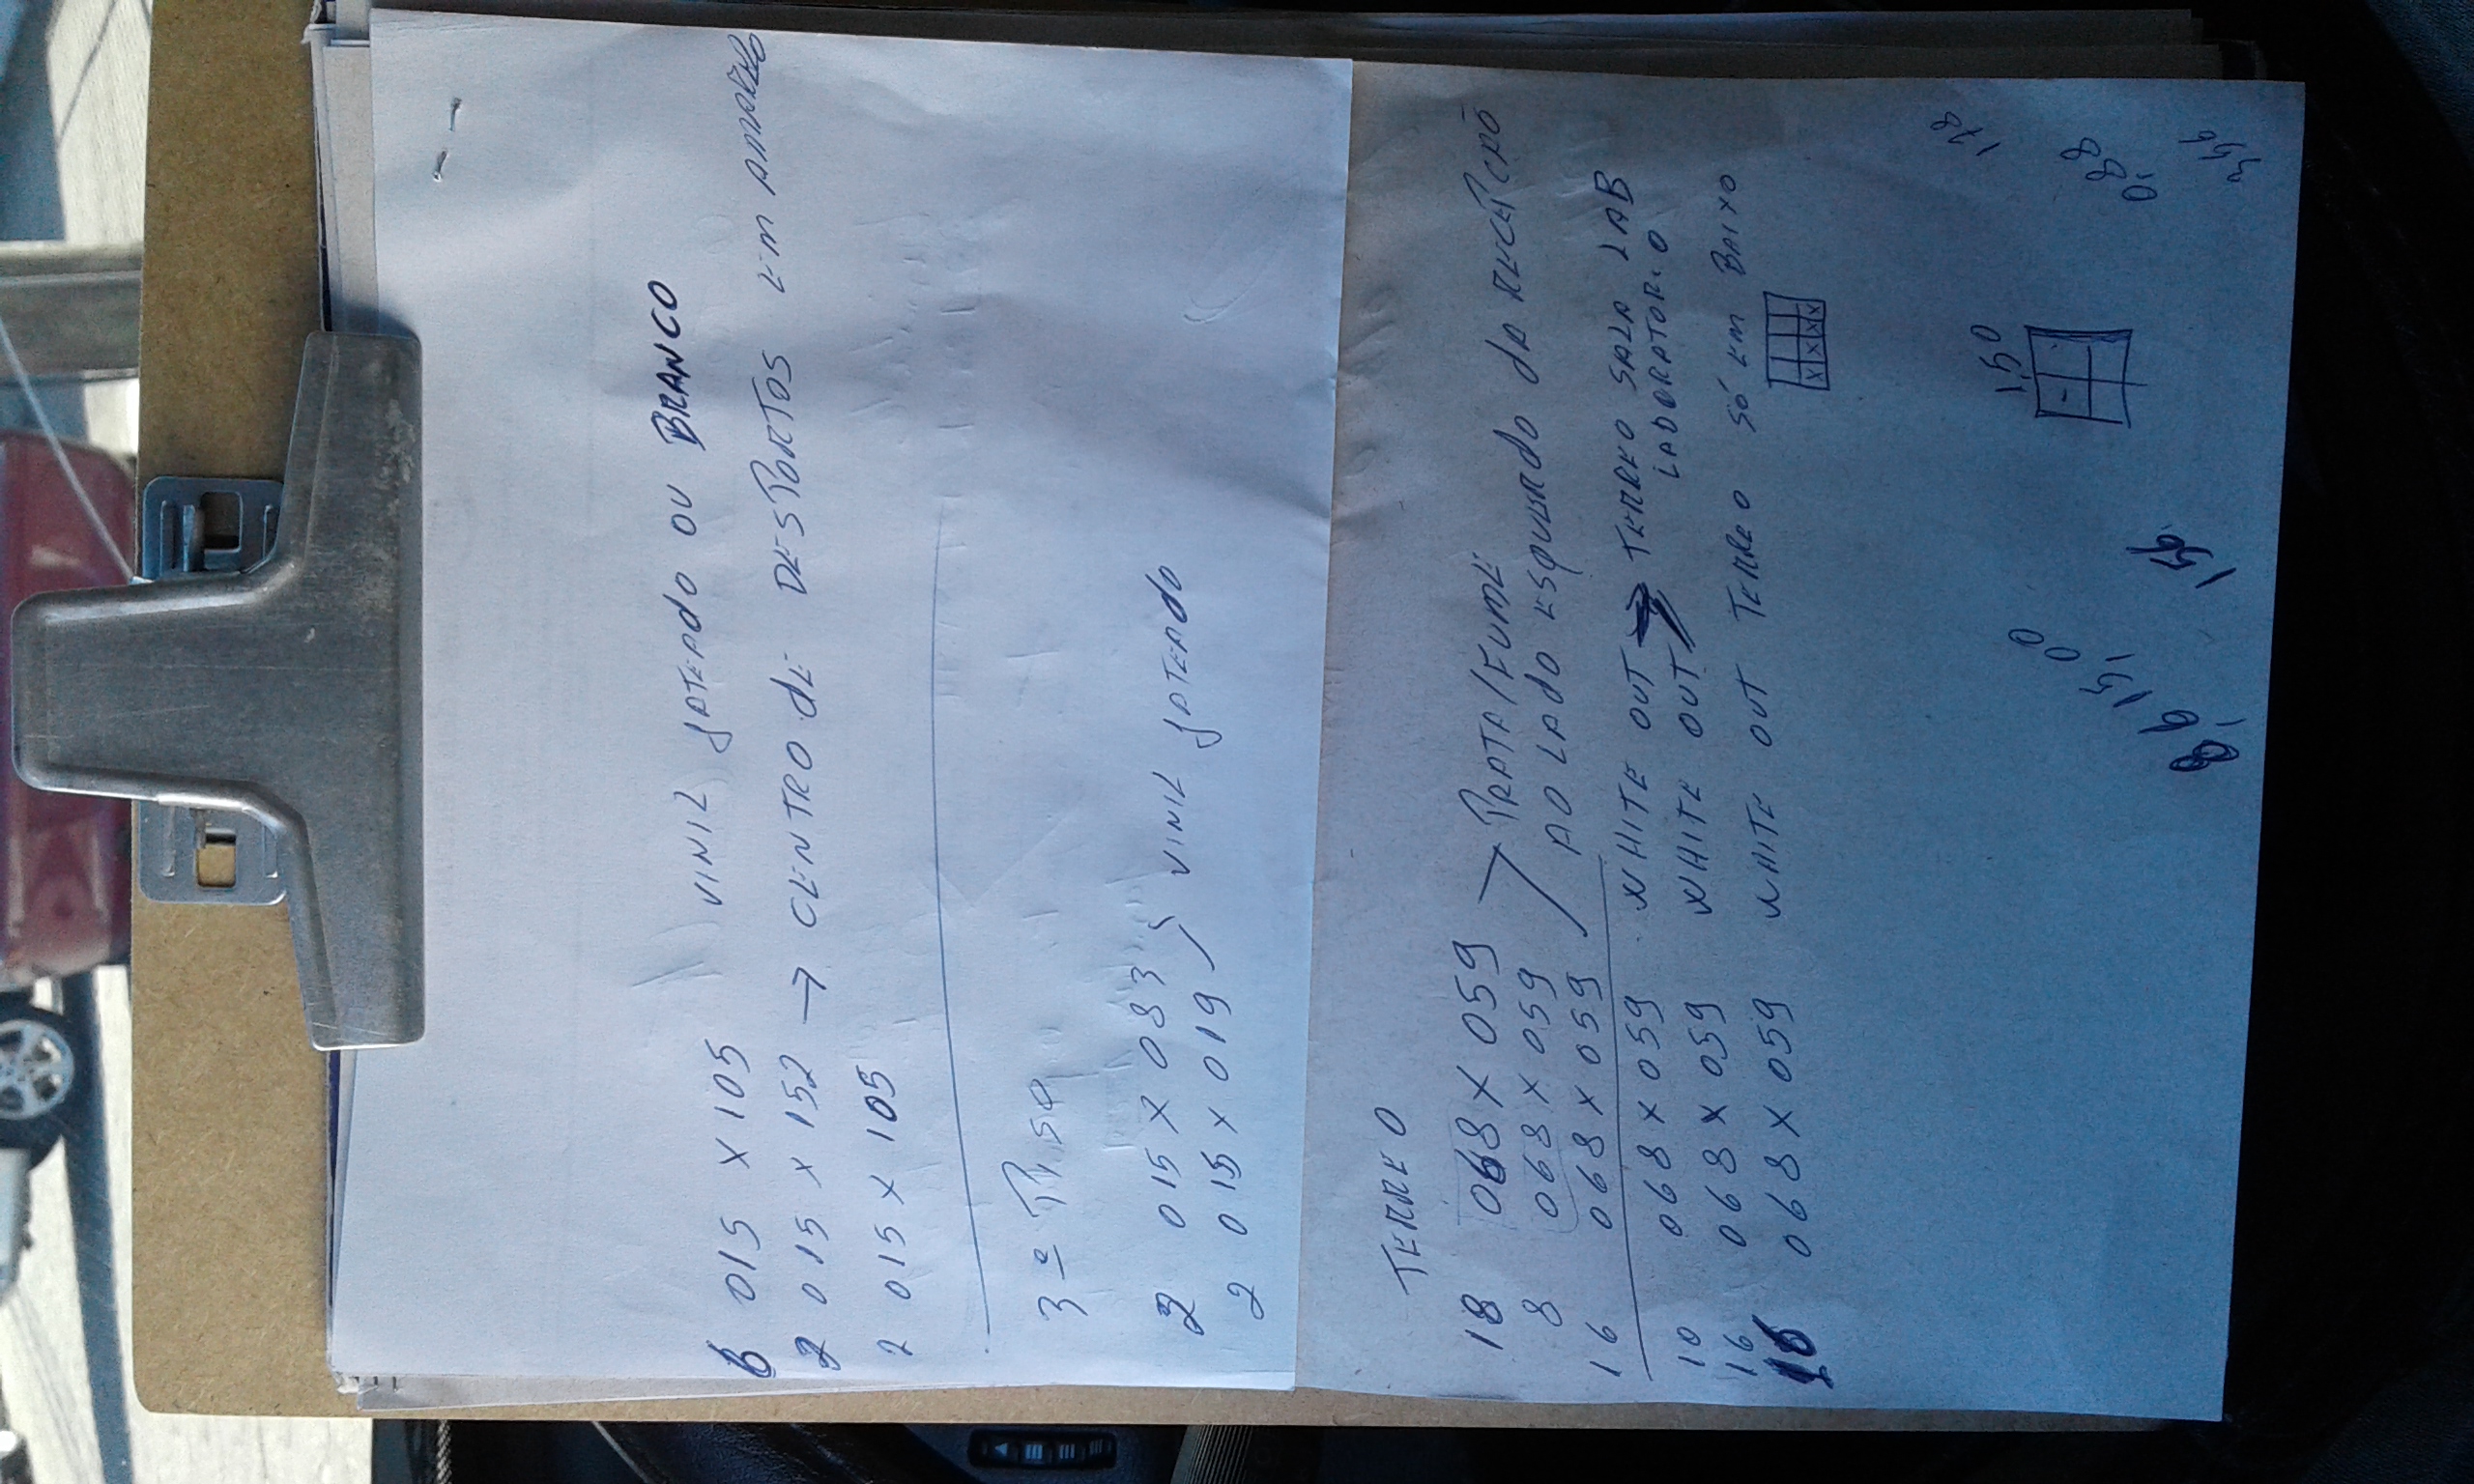 6 015 x 105 VINIL JATEADO OU BRANCO
2 015 x 152 → CENTRO dE DESPORTOS EM AMARELO
2 015 x 105
3º PISO
2 015 x 083
2 015 x 019
VINIL JATEADO
TERREO
18 068 x 059 PRATA/FUME
8 068 x 059 AO LADO ESQUERDO DA RECEPÇÃO
16 068 x 059
10 068 x 059 WHITE OUT → TERREO SALA LAB
16 068 x 059 WHITE OUT LABORATORIO
16 068 x 059 WHITE OUT TERREO SÓ EM BAIXO
X X X X
150